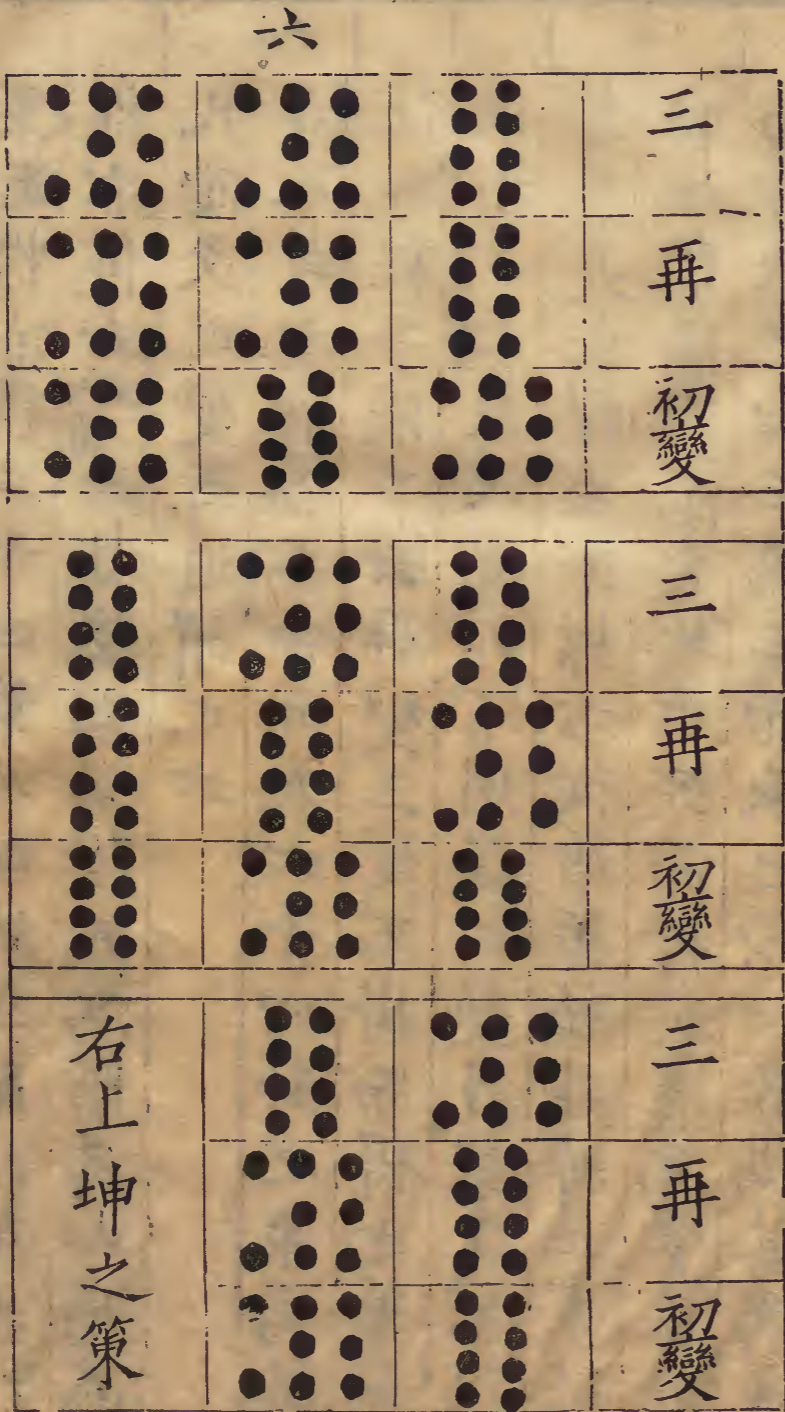 六
三
再
初變
三
再
初變
三
再
初變
右上坤之策